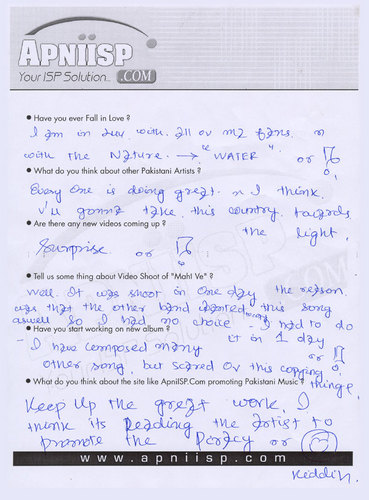 APNIISP
Your ISP Solution... .COM
• Have you ever Fall in Love ?
I am in luv with all ov my fans. n
with the Nature. → "WATER". or
• What do you think about other Pakistani Artists ?
Every One is doing great. n I think
v'll gonna take this country towards
• Are there any new videos coming up ?
the light.
Surprise. or
• Tell us some thing about Video Shoot of "Mahi Ve" ?
Well. It was shoot in One day the reason
was that the other band wanted this song
aswell so I had no choice - I had to do
• Have you start working on new album ?
it in 1 day
- I have composed many or
other song, but scared Ov this copying
• What do you think about the site like ApniISP.Com promoting Pakistani Music ?
things.
Keep Up the great work. I
think its leading the artist to
promote the Piracy or
www.apniisp.com
Keddin.